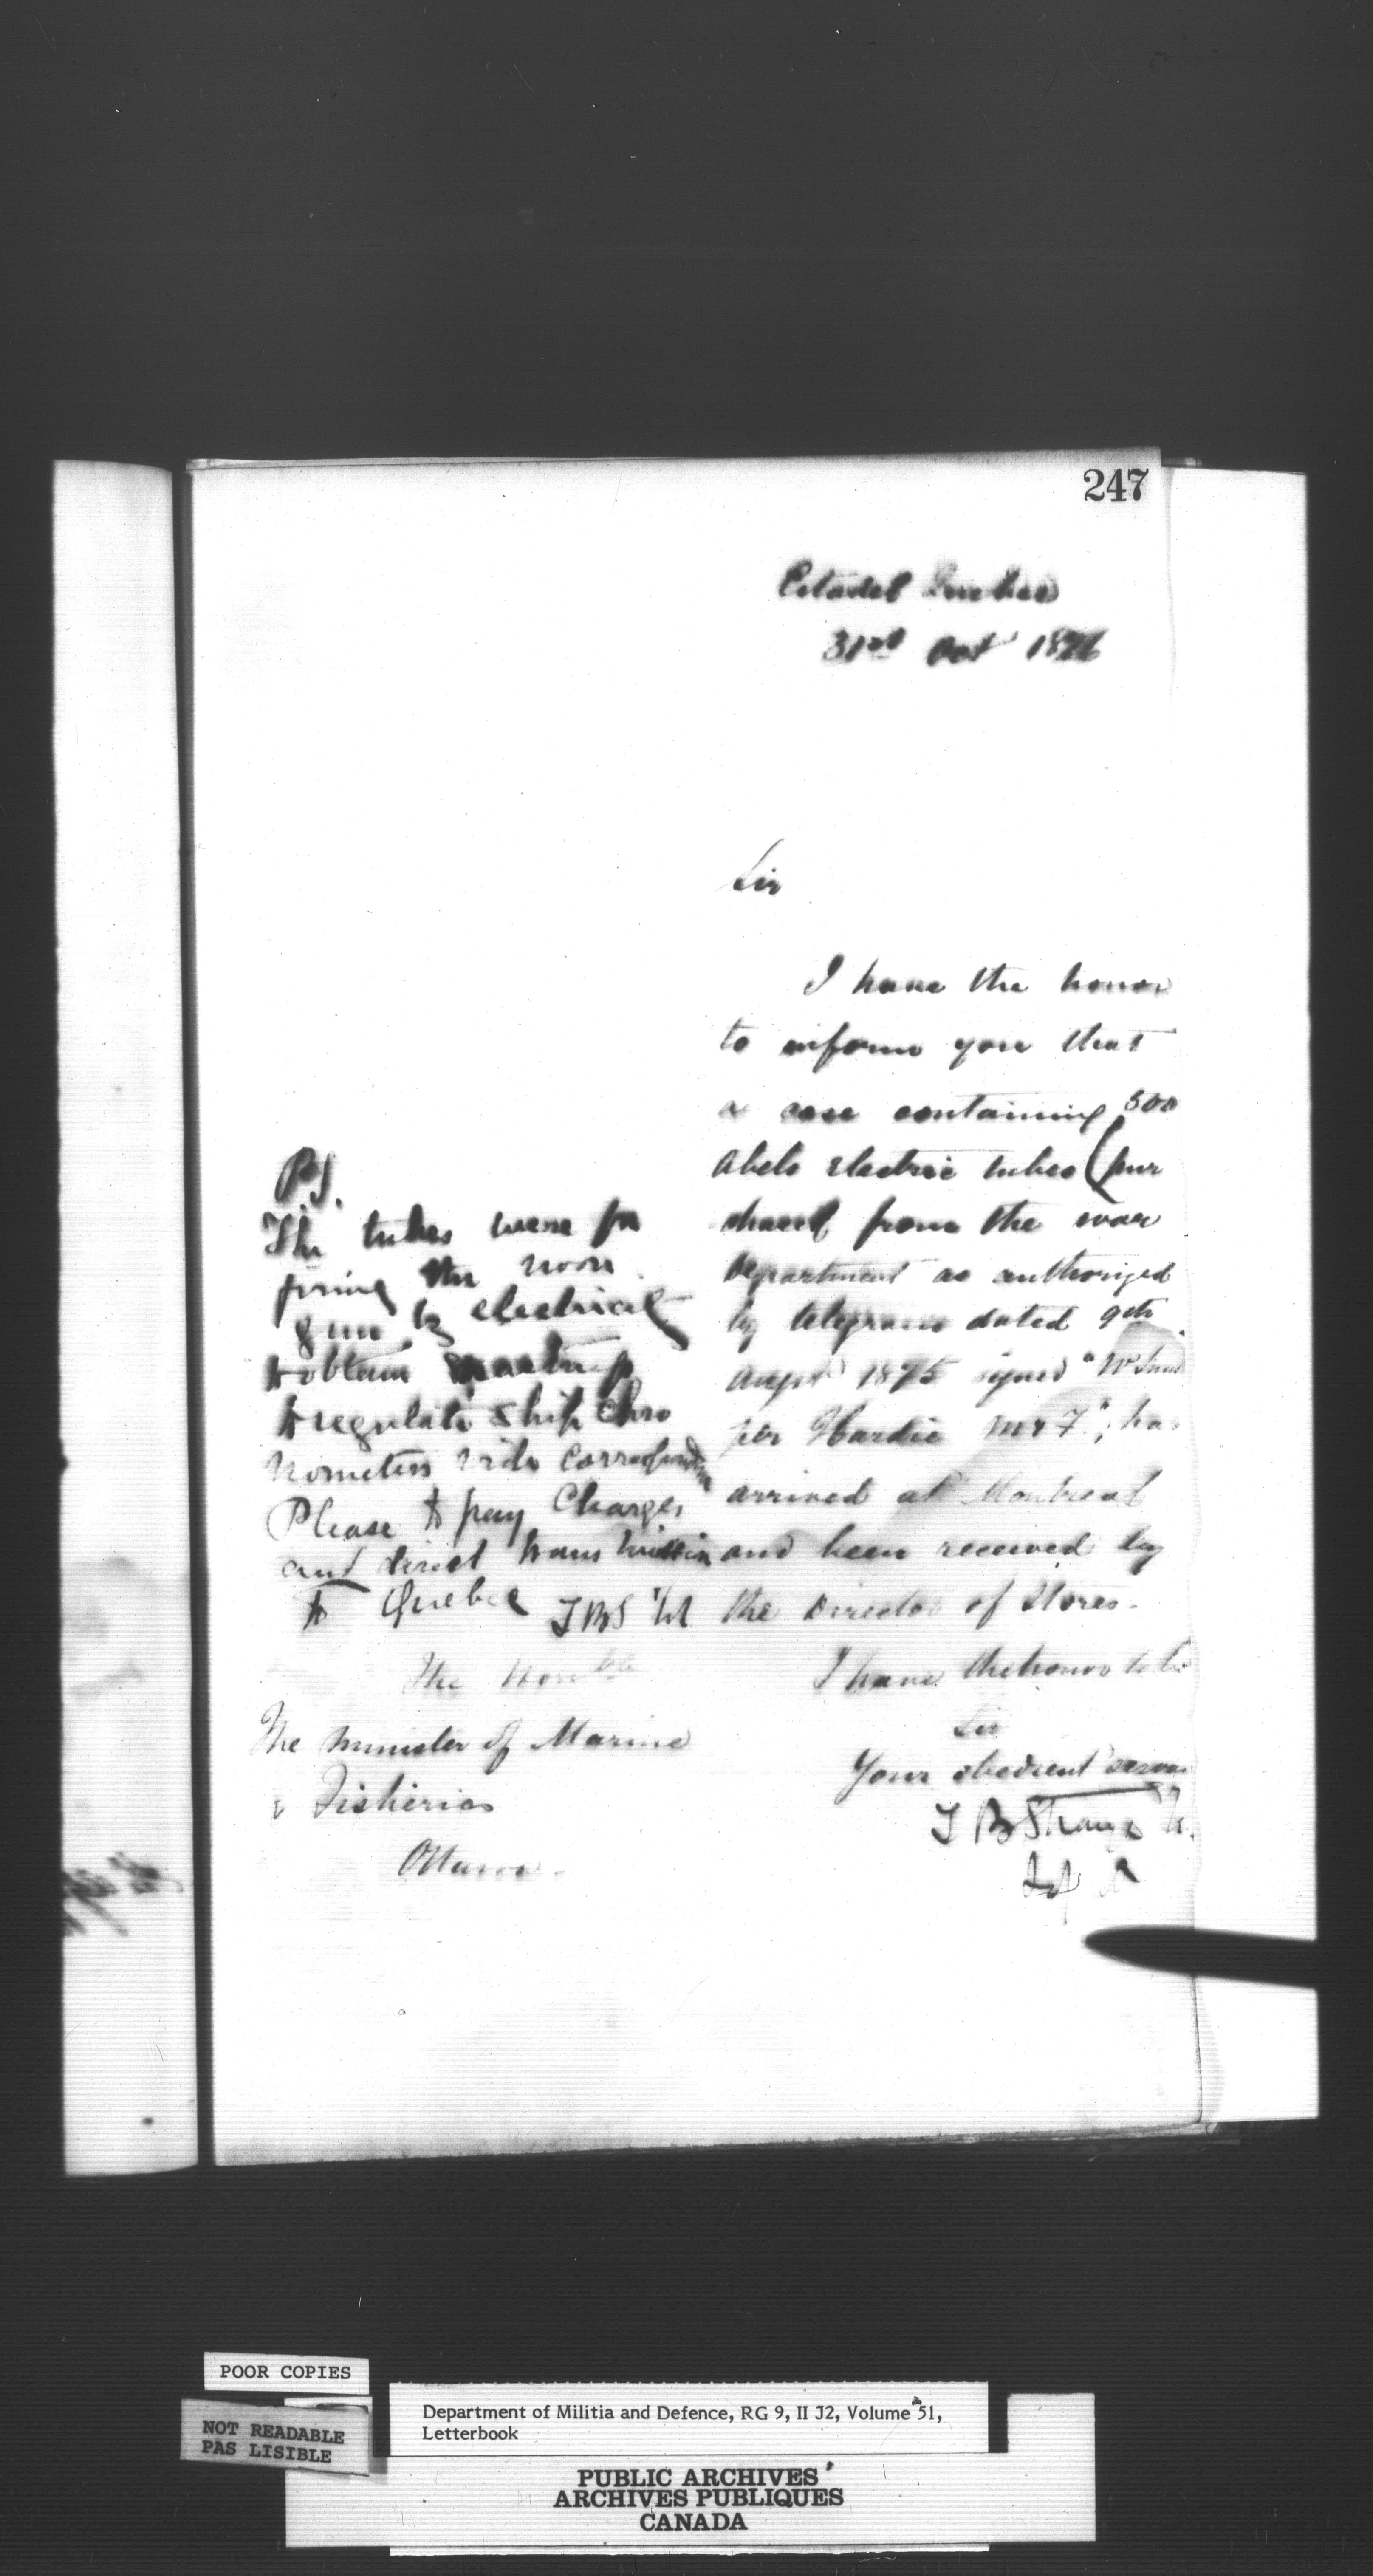 247
Citadel Quebec
31st Oct 1876
Sir
I have the honor
to inform you that
a case containing 500
Abels Electric tubes (pur
chased from the war
Department as authorized
by telegram dated 9th
Augst 1875 signed "W Smith
per Hardie M & F", has
arrived at Montreal
and been received by
the Director of Stores.
I have the honor to be
Sir
Your obedient servant
T B Strange
P.S.
The tubes were for
firing the noon
gun by electricity
to obtain
to regulate ship chro
nometers vide correspondence
Please to pay Charges
and direct transmission
to Quebec TBS
The Honble
The Minister of Marine
& Fisheries
Ottawa
POOR COPIES
NOT READABLE
PAS LISIBLE
Department of Militia and Defence, RG 9, II J2, Volume 51,
Letterbook
PUBLIC ARCHIVES
ARCHIVES PUBLIQUES
CANADA